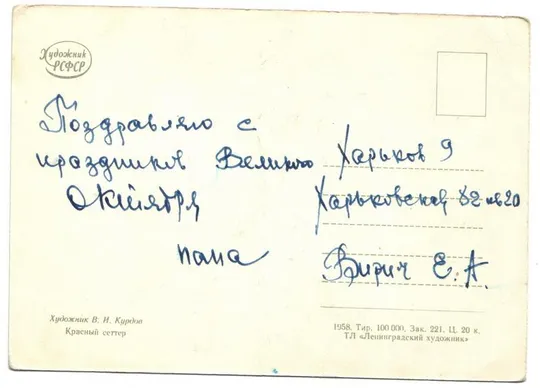 Художник
РСФСР
Поздравляю с
праздником Великого
Октября
папа
Харьков 9
Харьковская 82 кв 20
Вирич Е. А.
Художник В. И. Курдов
Красный сеттер
1958. Тир. 100 000. Зак. 221. Ц. 20 к.
ТЛ «Ленинградский художник»